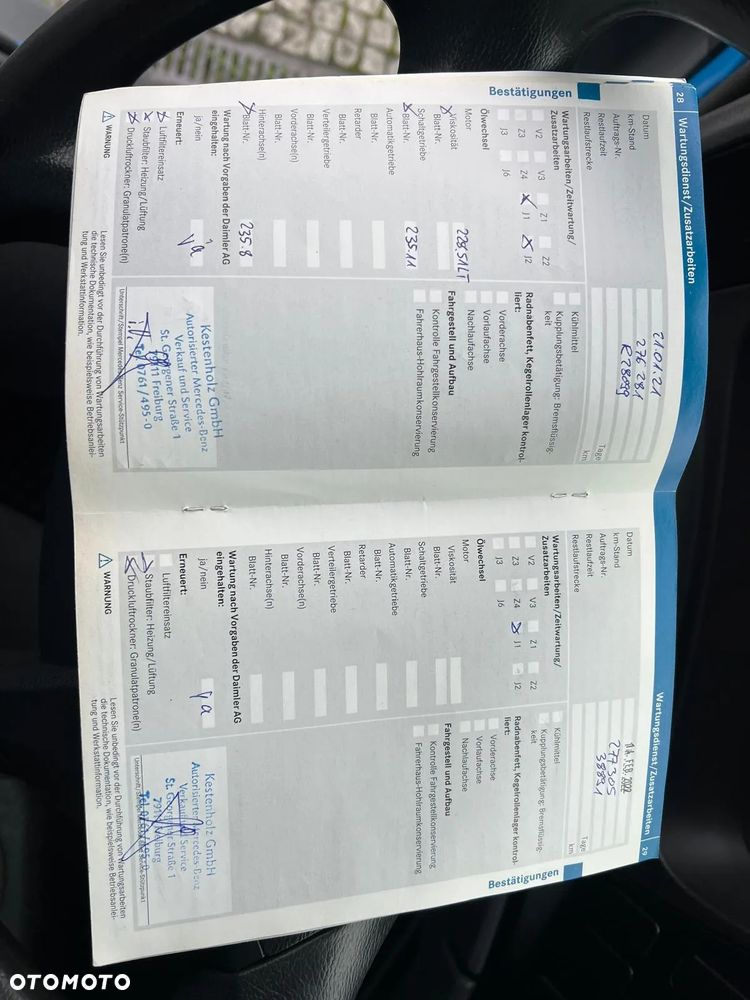 28
Wartungsdienst/Zusatzarbeiten
Bestätigungen
Datum
21.01.21
km-Stand
276 281
Auftrags-Nr.
R78099
Restlaufzeit
Tage
Restlaufstrecke
km
Wartungsarbeiten/Zeitwartung/
Zusatzarbeiten
V2
V3
Z1
Z2
Z3
Z4
J1
J2
J3
J6
Ölwechsel
Motor
Viskosität
Blatt-Nr.
228.51LT
Schaltgetriebe
Blatt-Nr.
235.11
Automatikgetriebe
Blatt-Nr.
Retarder
Blatt-Nr.
Verteilergetriebe
Blatt-Nr.
Vorderachse(n)
Blatt-Nr.
Hinterachse(n)
Blatt-Nr.
235.8
Wartung nach Vorgaben der Daimler AG
eingehalten:
ja/nein
ja
Erneuert:
Luftfiltereinsatz
Staubfilter: Heizung/Lüftung
Druckluftrockner: Granulatpatrone(n)
Kühlmittel
Kupplungsbetätigung: Bremsflüssig-
keit
Radnabenfett, Kegelrollenlager kontrol-
liert:
Vorderachse
Vorlaufachse
Nachlaufachse
Fahrgestell und Aufbau
Kontrolle Fahrgestellkonservierung
Fahrerhaus-Hohlraumkonservierung
Kestenholz GmbH
Autorisierter Mercedes-Benz
Verkauf und Service
St. Georgener Straße 1
79111 Freiburg
Tel. 0761/495-0
Unterschrift/Stempel Mercedes-Benz Service-Stützpunkt
WARNUNG
Lesen Sie unbedingt vor der Durchführung von Wartungsarbeiten
die technische Dokumentation, wie beispielsweise Betriebsanlei-
tung und Werkstattinformation.
Wartungsdienst/Zusatzarbeiten
29
Bestätigungen
Datum
FEB. 2022
km-Stand
277305
Auftrags-Nr.
38891
Restlaufzeit
Tage
Restlaufstrecke
km
Wartungsarbeiten/Zeitwartung/
Zusatzarbeiten
V2
V3
Z1
Z2
Z3
Z4
J1
J2
J3
J6
Ölwechsel
Motor
Viskosität
Blatt-Nr.
Schaltgetriebe
Blatt-Nr.
Automatikgetriebe
Blatt-Nr.
Retarder
Blatt-Nr.
Verteilergetriebe
Blatt-Nr.
Vorderachse(n)
Blatt-Nr.
Hinterachse(n)
Blatt-Nr.
Wartung nach Vorgaben der Daimler AG
eingehalten:
ja/nein
ja
Erneuert:
Luftfiltereinsatz
Staubfilter: Heizung/Lüftung
Druckluftrockner: Granulatpatrone(n)
Kühlmittel
Kupplungsbetätigung: Bremsflüssig-
keit
Radnabenfett, Kegelrollenlager kontrol-
liert:
Vorderachse
Vorlaufachse
Nachlaufachse
Fahrgestell und Aufbau
Kontrolle Fahrgestellkonservierung
Fahrerhaus-Hohlraumkonservierung
Kestenholz GmbH
Autorisierter Mercedes-Benz
Verkauf und Service
St. Georgener Straße 1
Freiburg
WARNUNG
Lesen Sie unbedingt vor der Durchführung von Wartungsarbeiten
die technische Dokumentation, wie beispielsweise Betriebsanlei-
tung und Werkstattinformation.
OTOMOTO